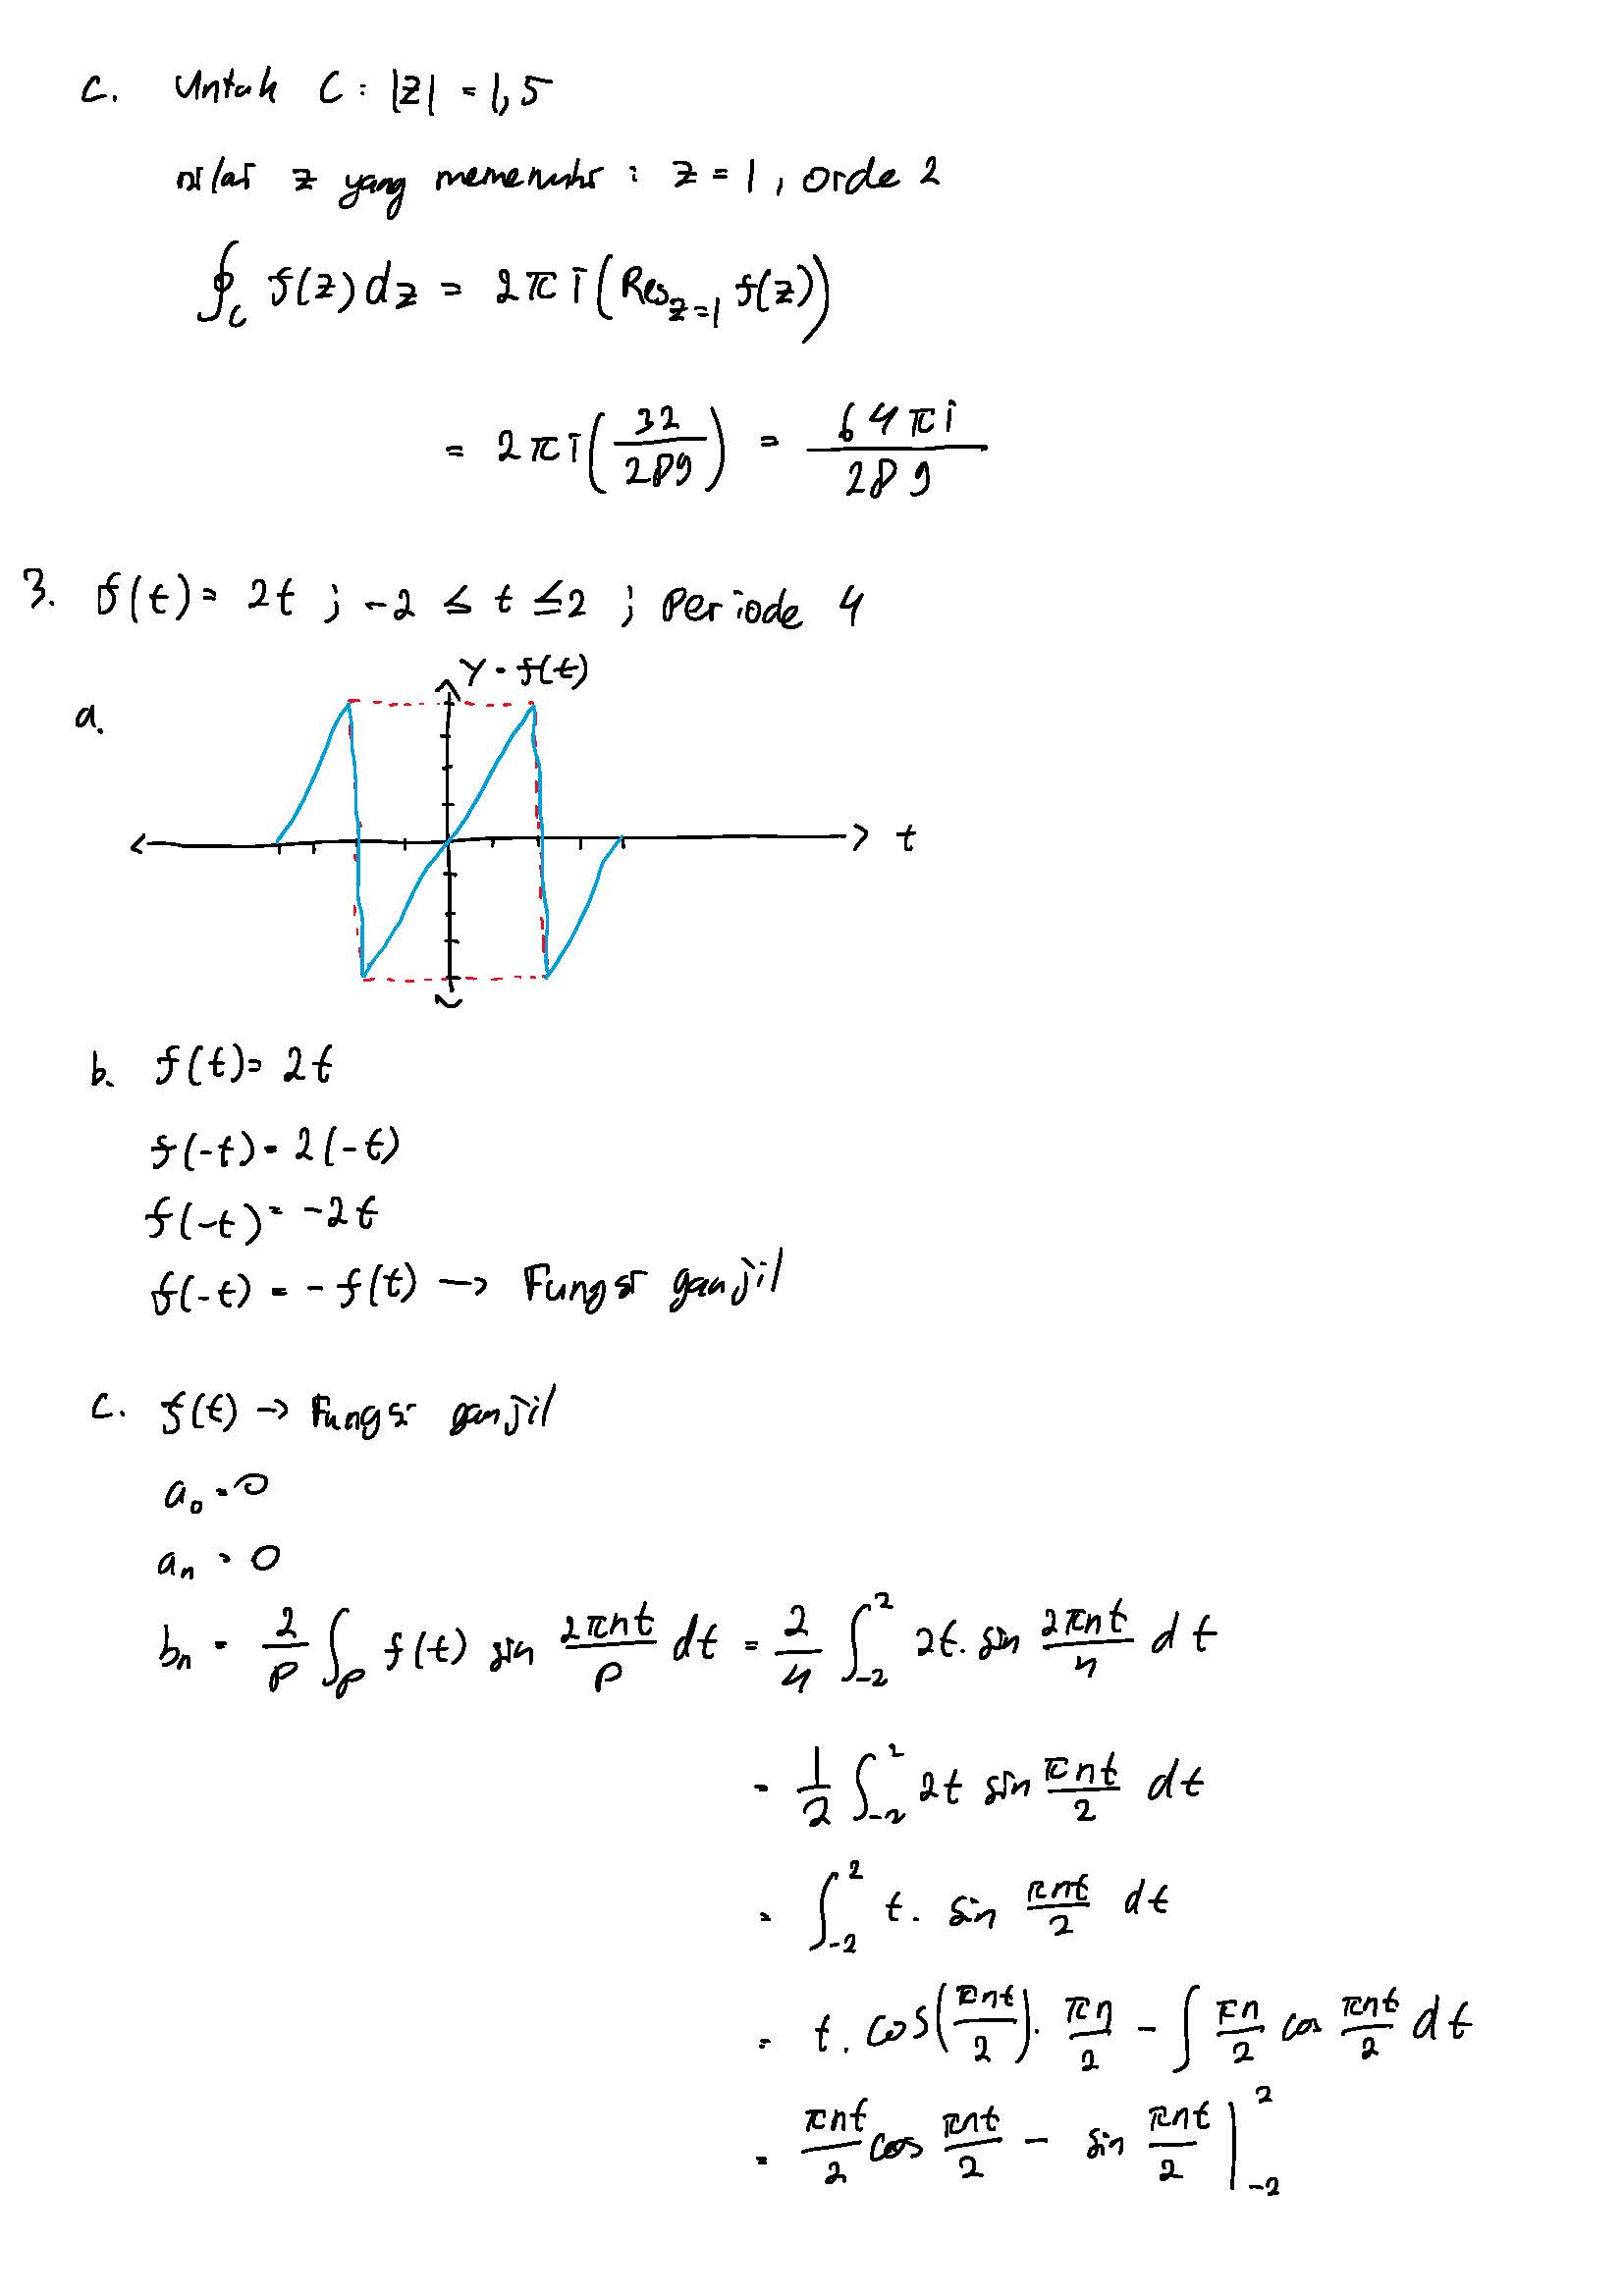 c. Untuk C : |z| = 1,5
nilai z yang memenuhi : z = 1, orde 2
∮_C f(z) dz = 2πi (Res_{z=1} f(z))
= 2πi (32/289) = 64πi/289
3. f(t) = 2t ; -2 ≤ t ≤ 2 ; Periode 4
Y = f(t)
a.
t
b. f(t) = 2t
f(-t) = 2(-t)
f(-t) = -2t
f(-t) = -f(t) → Fungsi ganjil
c. f(t) → Fungsi ganjil
a₀ = 0
aₙ = 0
bₙ = 2/P ∫_P f(t) sin 2πnt/P dt = 2/4 ∫_{-2}^{2} 2t. sin 2πnt/4 dt
= 1/2 ∫_{-2}^{2} 2t sin πnt/2 dt
= ∫_{-2}^{2} t. sin πnt/2 dt
= t. cos(πnt/2). πn/2 - ∫ πn/2 cos πnt/2 dt
= πnt/2 cos πnt/2 - sin πnt/2 |_{-2}^{2}